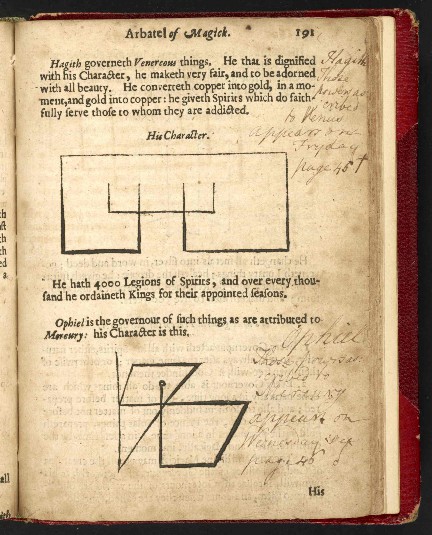 Arbatel of Magick. 191
Hagith governeth Venereous things. He that is dignified
with his Character, he maketh very fair, and to be adorned
with all beauty. He converreth copper into gold, in a mo-
ment, and gold into copper: he giveth Spirits which do faith-
fully serve those to whom they are addicted.
His Character.
He hath 4000 Legions of Spirits, and over every thou-
sand he ordaineth Kings for their appointed seasons.
Ophiel is the governour of such things as are attributed to
Mercury: his Character is this.
His
Hagith
Those
to Venus
appears on
Fryday
page 45
Ophiel
Those
appears on
Wednesday
page 45
all